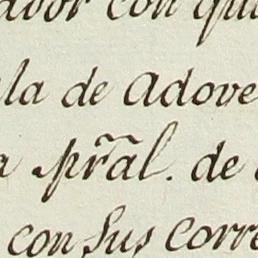 ador con qu
la de Adove
a pr̃al. de
con sus corre